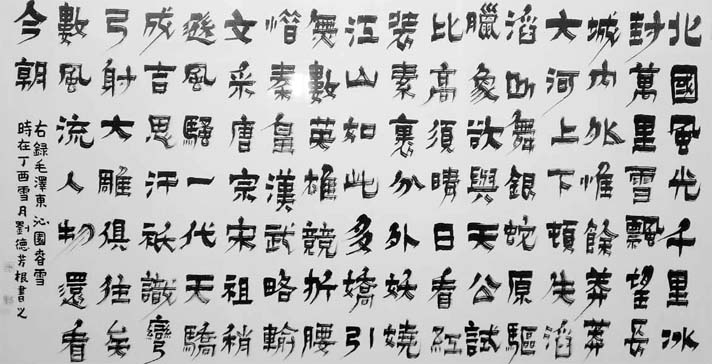 北國風光千里冰
封萬里雪飄望長
城內外惟餘莽莽
大河上下頓失滔
滔山舞銀蛇原驅
臘象欲與天公試
比高須晴日看紅
裝素裹分外妖嬈
江山如此多嬌引
無數英雄競折腰
惜秦皇漢武略輸
文采唐宗宋祖稍
遜風騷一代天驕
成吉思汗祇識彎
弓射大雕俱往矣
數風流人物還看
今朝
右錄毛澤東沁園春雪
時在丁酉雪月劉德芳根書之